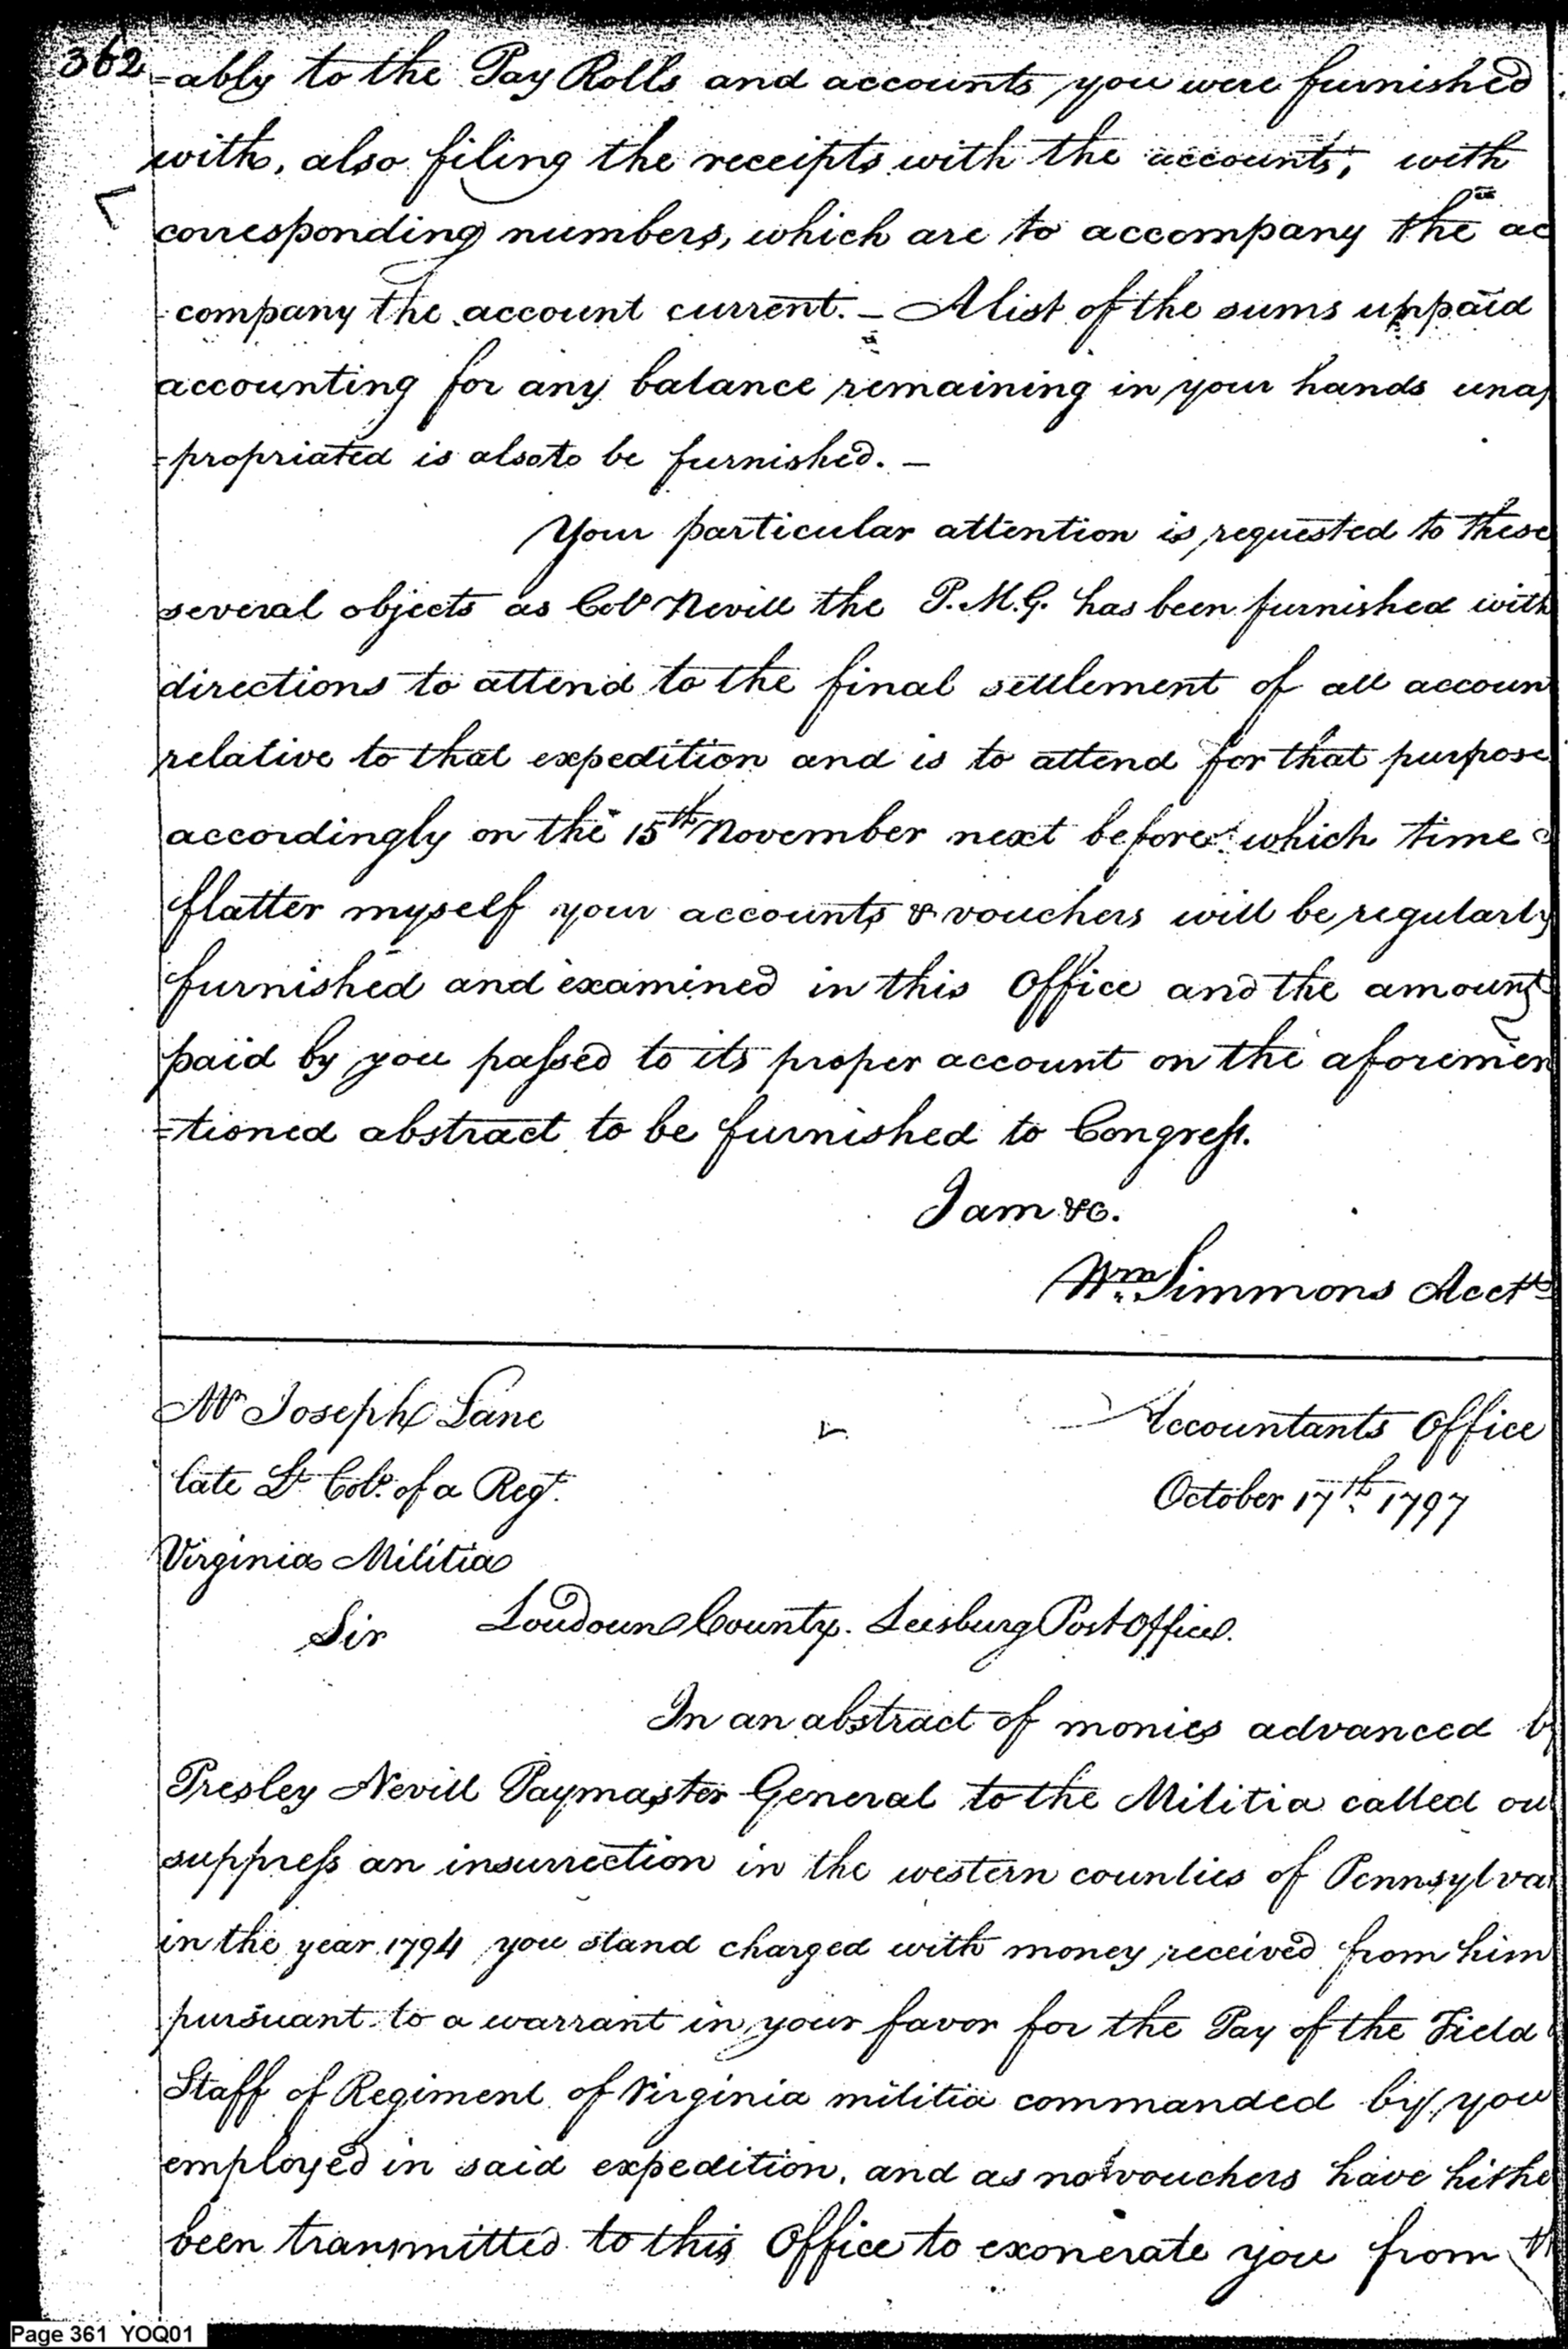 362
=ably to the Pay Rolls and accounts you were furnished
with, also filing the receipts with the accounts, with
corresponding numbers, which are to accompany the ac
-company the account current. – A list of the sums unpaid
accounting for any balance remaining in your hands unap
=propriated is also to be furnished. –
Your particular attention is requested to these
several objects as Colo Nevill the P.M.G. has been furnished with
directions to attend to the final settlement of all accoun
relative to that expedition and is to attend for that purpose
accordingly on the 15th November next before which time
flatter myself your accounts & vouchers will be regularly
furnished and examined in this Office and the amount
paid by you passed to its proper account on the aforemen
=tioned abstract to be furnished to Congress.
I am &c.
Wm Simmons Acctt
Mr Joseph Lane
Accountants Office
late Lt Colo. of a Regt.
October 17th 1797
Virginia Militia
Sir Loudoun County. Leesburg Post Office.
In an abstract of monies advanced by
Presley Nevill Paymaster General to the Militia called ou
suppress an insurrection in the western counties of Pennsylva
in the year 1794 you stand charged with money received from him
pursuant to a warrant in your favor for the Pay of the Field
Staff of Regiment of Virginia militia commanded by you
employed in said expedition, and as no vouchers have hithe
been transmitted to this Office to exonerate you from th
Page 361 YOQ01